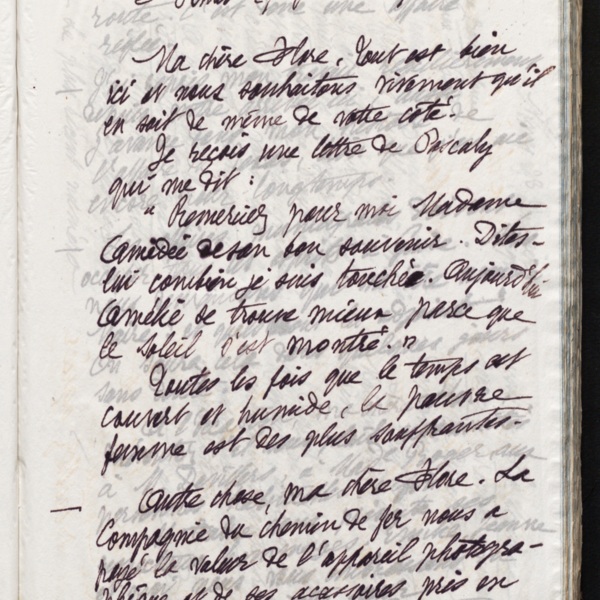 Ma chère Flore, Tout est bien
ici et nous souhaitons vivement qu'il
en soit de même de votre côté.
Je reçois une lettre de Pascaly
qui me dit :
" Remerciez pour moi Madame
Camédée de son bon souvenir. Dites-
lui combien je suis touchée. Aujourd'hui
Camélie se trouve mieux parce que
le soleil s'est montré. "
Toutes les fois que le temps est
couvert et humide, la pauvre
femme est des plus souffrantes.
Autre chose, ma chère Flore. La
Compagnie du chemin de fer nous a
payé la valeur de l'appareil photogra-
phique et de ses accessoires pris en